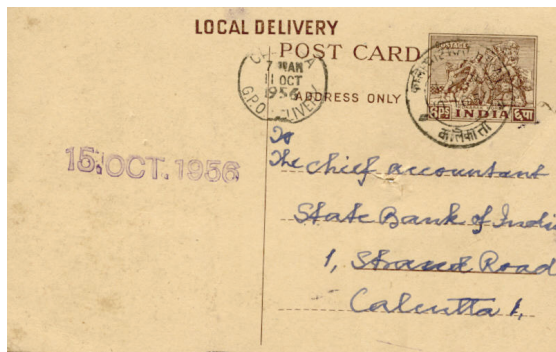 LOCAL DELIVERY
POST CARD
ADDRESS ONLY
7 30AM
11 OCT
1956
G.P.O. DELIVERY
POSTAGE
6ps INDIA
कलिकाता
15 OCT. 1956
To
The Chief accountant
State Bank of India
1, Strand Road
Calcutta 1.